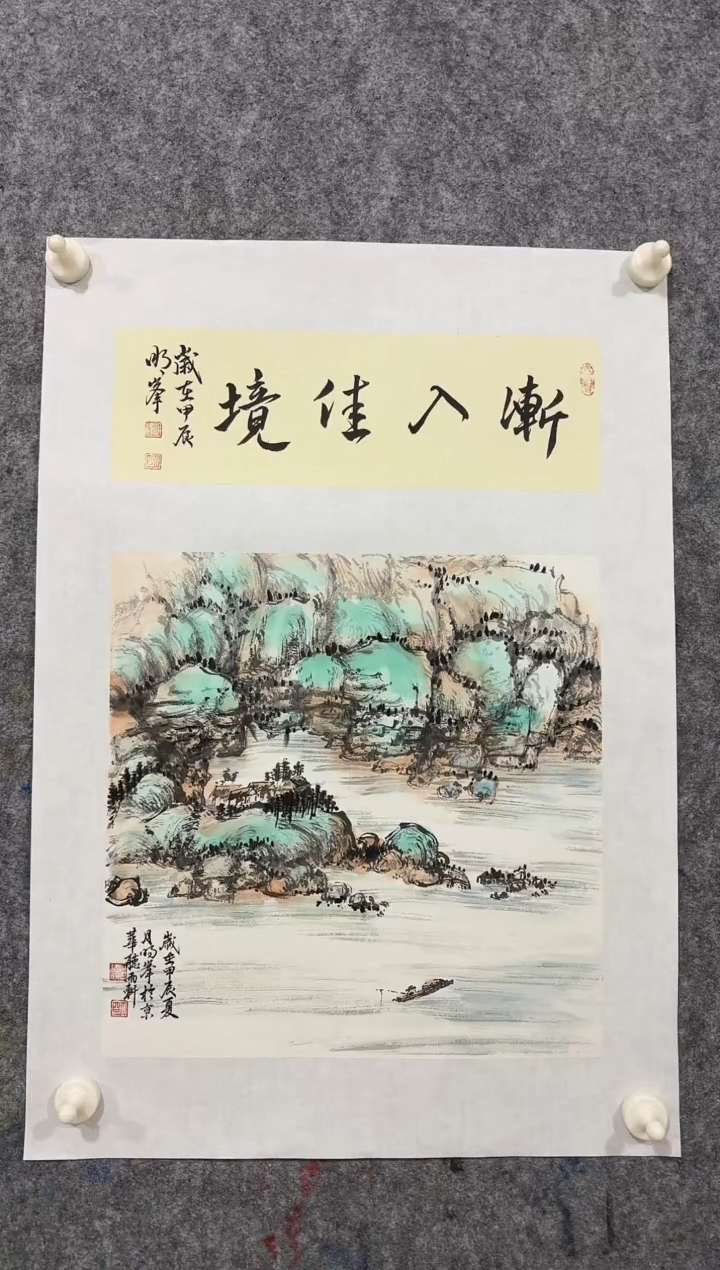 漸入佳境
歲在甲辰
明峯
歲在甲辰夏
月明峯於京
華聽雨軒